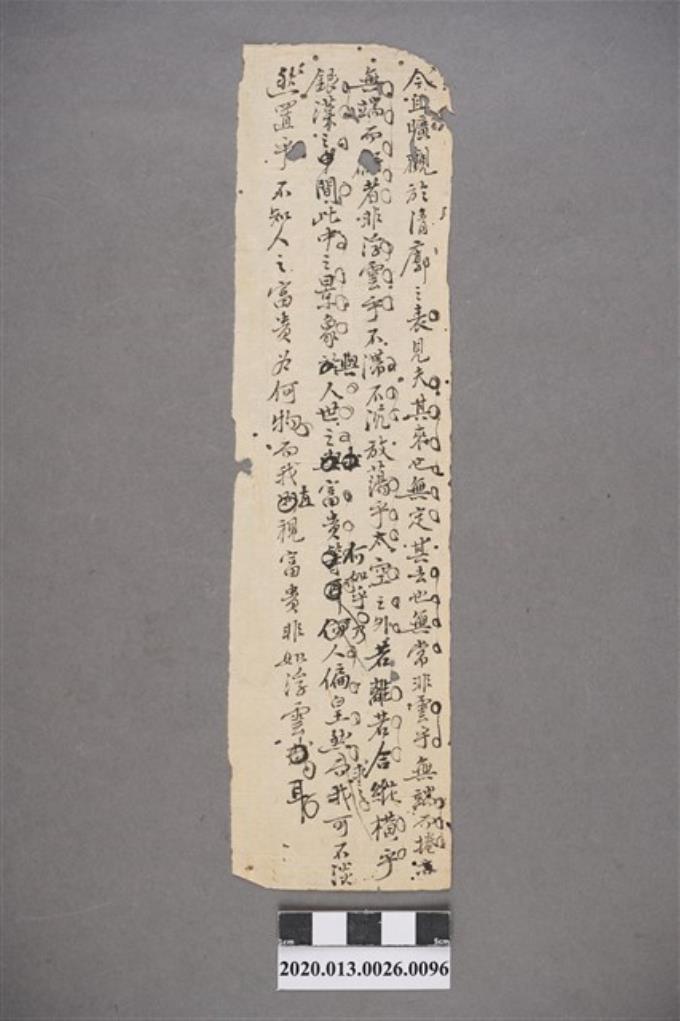 今且曠觀於清廓之表見夫其來也無定其去也無常非雲乎無端而捲
無端而舒者非浮雲乎不滯不沉放蕩乎太空之外若離若合縱橫乎
銀漢之中間此中之景象於人世之富貴何如乎乃人偏皇然而我可不淡
然置乎不知人之富貴為何物而我直視富貴非如浮雲耳
5cm
2020.013.0026.0096